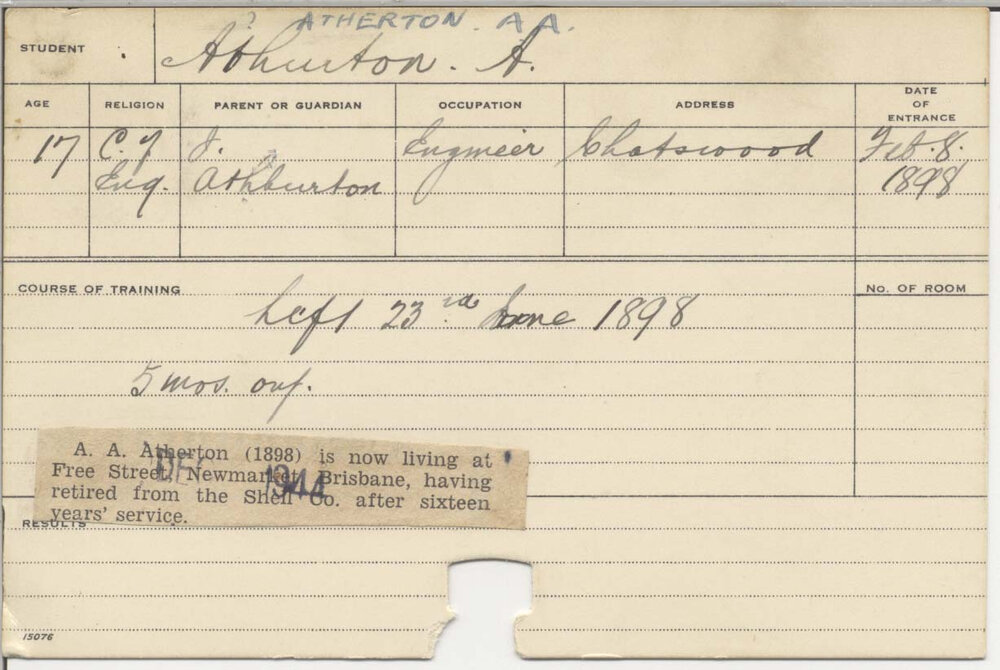 ? ATHERTON. A A.
STUDENT
Atherton. A.
AGE RELIGION PARENT OR GUARDIAN OCCUPATION ADDRESS DATE OF ENTRANCE
17 C. of J. Engineer Chatswood Feb. 8.
Eng. Athburton 1898
COURSE OF TRAINING No. OF ROOM
Left 23rd June 1898
5 mos. only.
A. A. Atherton (1898) is now living at
Free Street, Newmarket, Brisbane, having
retired from the Shell Co. after sixteen
years' service.
DEC 1944
RESULTS
15076